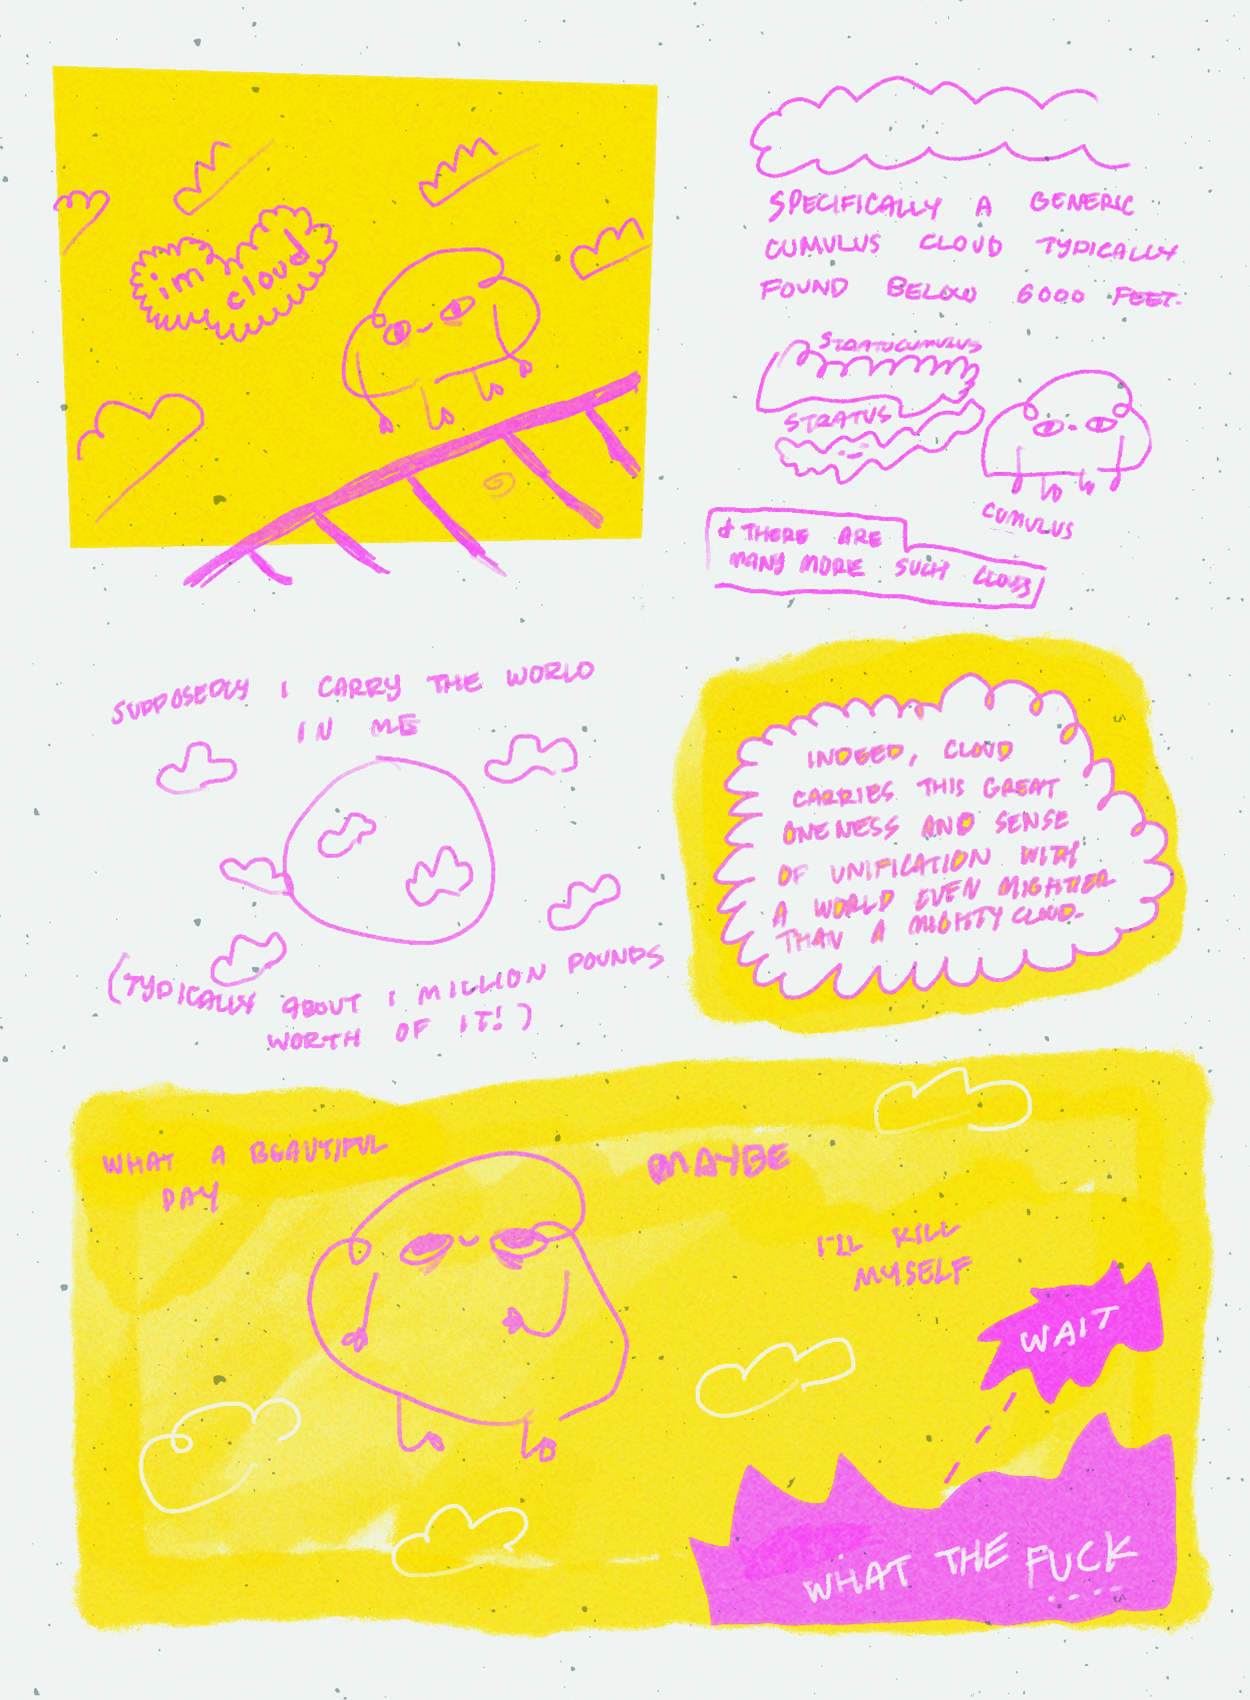 im
cloud
SPECIFICALLY A GENERIC
CUMULUS CLOUD TYPICALLY
FOUND BELOW 6000 FEET.
STRATOCUMULUS
STRATUS
CUMULUS
& THERE ARE
MANY MORE SUCH CLOUDS
SUPPOSEDLY I CARRY THE WORLD
IN ME
(TYPICALLY ABOUT 1 MILLION POUNDS
WORTH OF IT!)
INDEED, CLOUD
CARRIES THIS GREAT
ONENESS AND SENSE
OF UNIFICATION WITH
A WORLD EVEN MIGHTIER
THAN A MIGHTY CLOUD.
WHAT A BEAUTIFUL
DAY
MAYBE
I'LL KILL
MYSELF
WAIT
WHAT THE FUCK
....